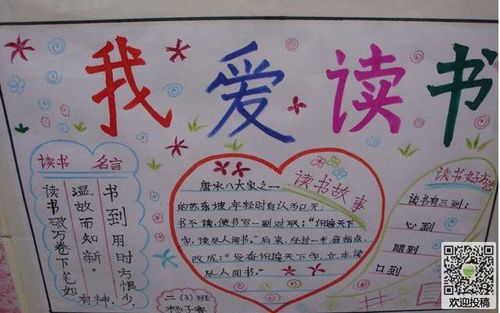 我爱读书
读书 名言
书到用时方恨少,
温故而知新。
读书破万卷下笔如
有神,
读书故事
唐宋八大家之一
的苏东坡,年轻时自认为
书不读,便书写一副对联:
识遍天下
字,读尽人间书。"后来,
改成:
发奋识遍天下字,立志读
尽人间书。"
读书好
读书有三到:
心到
眼到
口到
二(3)班
欢迎投稿